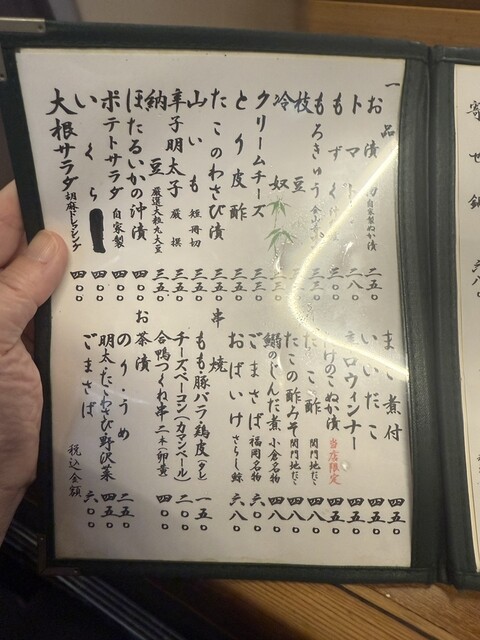 一品
お漬物 自家製ぬか漬 二五〇
トマト 二八〇
もずく 三〇〇
もろきゅう 三三〇
枝豆 三三〇
冷奴 三三〇
クリームチーズ 三三〇
とり皮酢 三五〇
たこのわさび 三五〇
山いも 短冊切 三五〇
辛子明太子 厳撰 三五〇
納豆 厳選大粒丸大豆 三五〇
ほたるいかの沖漬 四〇〇
ポテトサラダ 自家製 四〇〇
いくら 四〇〇
大根サラダ 胡麻ドレッシング 四〇〇
まこ煮付 四五〇
いいだこ 四五〇
辛口ウィンナー 四五〇
たけのこぬか漬 当店限定 四五〇
たこ酢 関門地だこ 四八〇
たこの酢みそ 関門地だこ 四八〇
鰯のじんだ煮 小倉名物 四八〇
ごまさば 福岡名物 六〇〇
おばいけ さらし鯨 六八〇
串焼
もも・豚バラ・鶏皮(タレ) 一五〇
チーズベーコン(カマンベール) 二〇〇
合鴨つくね串 二本(卵黄) 四〇〇
お茶漬
のり・うめ 三五〇
明太・たこわさび・野沢菜 四五〇
ごまさば 六〇〇
税込金額
寄せ鍋